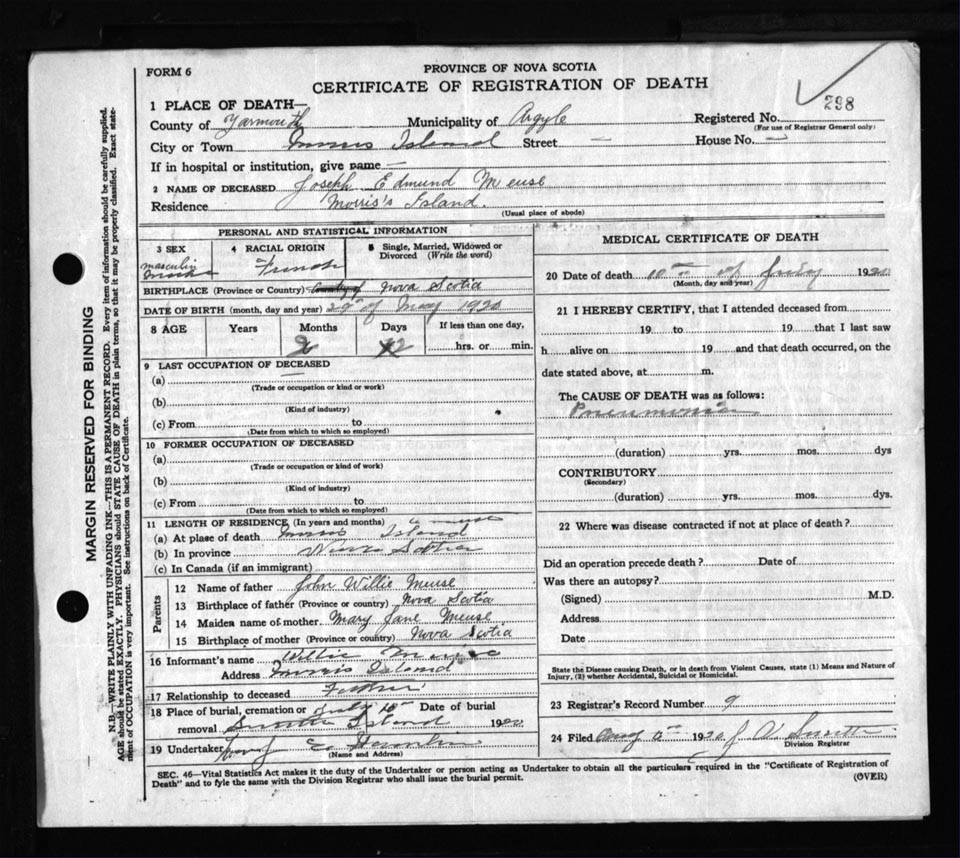 FORM 6
PROVINCE OF NOVA SCOTIA
CERTIFICATE OF REGISTRATION OF DEATH
298
1 PLACE OF DEATH—
County of Yarmouth Municipality of Argyle Registered No.
(For use of Registrar General only)
City or Town Morris Island Street — House No. —
If in hospital or institution, give name —
2 NAME OF DECEASED Joseph Edmund Meuse
Residence Morris's Island.
(Usual place of abode)
PERSONAL AND STATISTICAL INFORMATION
3 SEX 4 RACIAL ORIGIN 5 Single, Married, Widowed or Divorced (Write the word)
masculin French
BIRTHPLACE (Province or Country) Nova Scotia
DATE OF BIRTH (month, day and year) 29 of May 1920
8 AGE Years Months Days If less than one day,
hrs. or min.
9 LAST OCCUPATION OF DECEASED
(a)
(Trade or occupation or kind or work)
(b)
(Kind of industry)
(c) From to
(Date from which to which so employed)
10 FORMER OCCUPATION OF DECEASED
(a)
(Trade or occupation or kind of work)
(b)
(Kind of industry)
(c) From to
(Date from which to which so employed)
11 LENGTH OF RESIDENCE (In years and months)
(a) At place of death Morris Island
(b) In province Nova Scotia
(c) In Canada (if an immigrant)
Parents
12 Name of father John Willie Meuse
13 Birthplace of father (Province or country) Nova Scotia
14 Maiden name of mother Mary Jane Meuse
15 Birthplace of mother (Province or country) Nova Scotia
16 Informant's name Willie Meuse
Address Morris Island
17 Relationship to deceased Father
18 Place of burial, cremation or removal July Date of burial
Surette Island 1920
19 Undertaker
(Name and Address)
MEDICAL CERTIFICATE OF DEATH
20 Date of death 10th of July 1920
(Month, day and year)
21 I HEREBY CERTIFY, that I attended deceased from
19 to 19 that I last saw
h alive on 19 and that death occurred, on the
date stated above, at m.
The CAUSE OF DEATH was as follows:
Pneumonia
(duration) yrs. mos. dys
CONTRIBUTORY
(Secondary)
(duration) yrs. mos. dys.
22 Where was disease contracted if not at place of death?
Did an operation precede death? Date of
Was there an autopsy?
(Signed) M.D.
Address
Date
State the Disease causing Death, or in death from Violent Causes, state (1) Means and Nature of
Injury, (2) whether Accidental, Suicidal or Homicidal.
23 Registrar's Record Number 9
24 Filed Aug 1920 J A Surette
Division Registrar
SEC. 46—Vital Statistics Act makes it the duty of the Undertaker or person acting as Undertaker to obtain all the particulars required in the "Certificate of Registration of
Death" and to fyle the same with the Division Registrar who shall issue the burial permit.
(OVER)
MARGIN RESERVED FOR BINDING
N.B.—WRITE PLAINLY WITH UNFADING INK—THIS IS A PERMANENT RECORD. Every item of information should be carefully supplied.
AGE should be stated EXACTLY. PHYSICIANS should STATE CAUSE OF DEATH in plain terms, so that it may be properly classified. Exact state-
ment of OCCUPATION is very important. See instructions on back of Certificate.